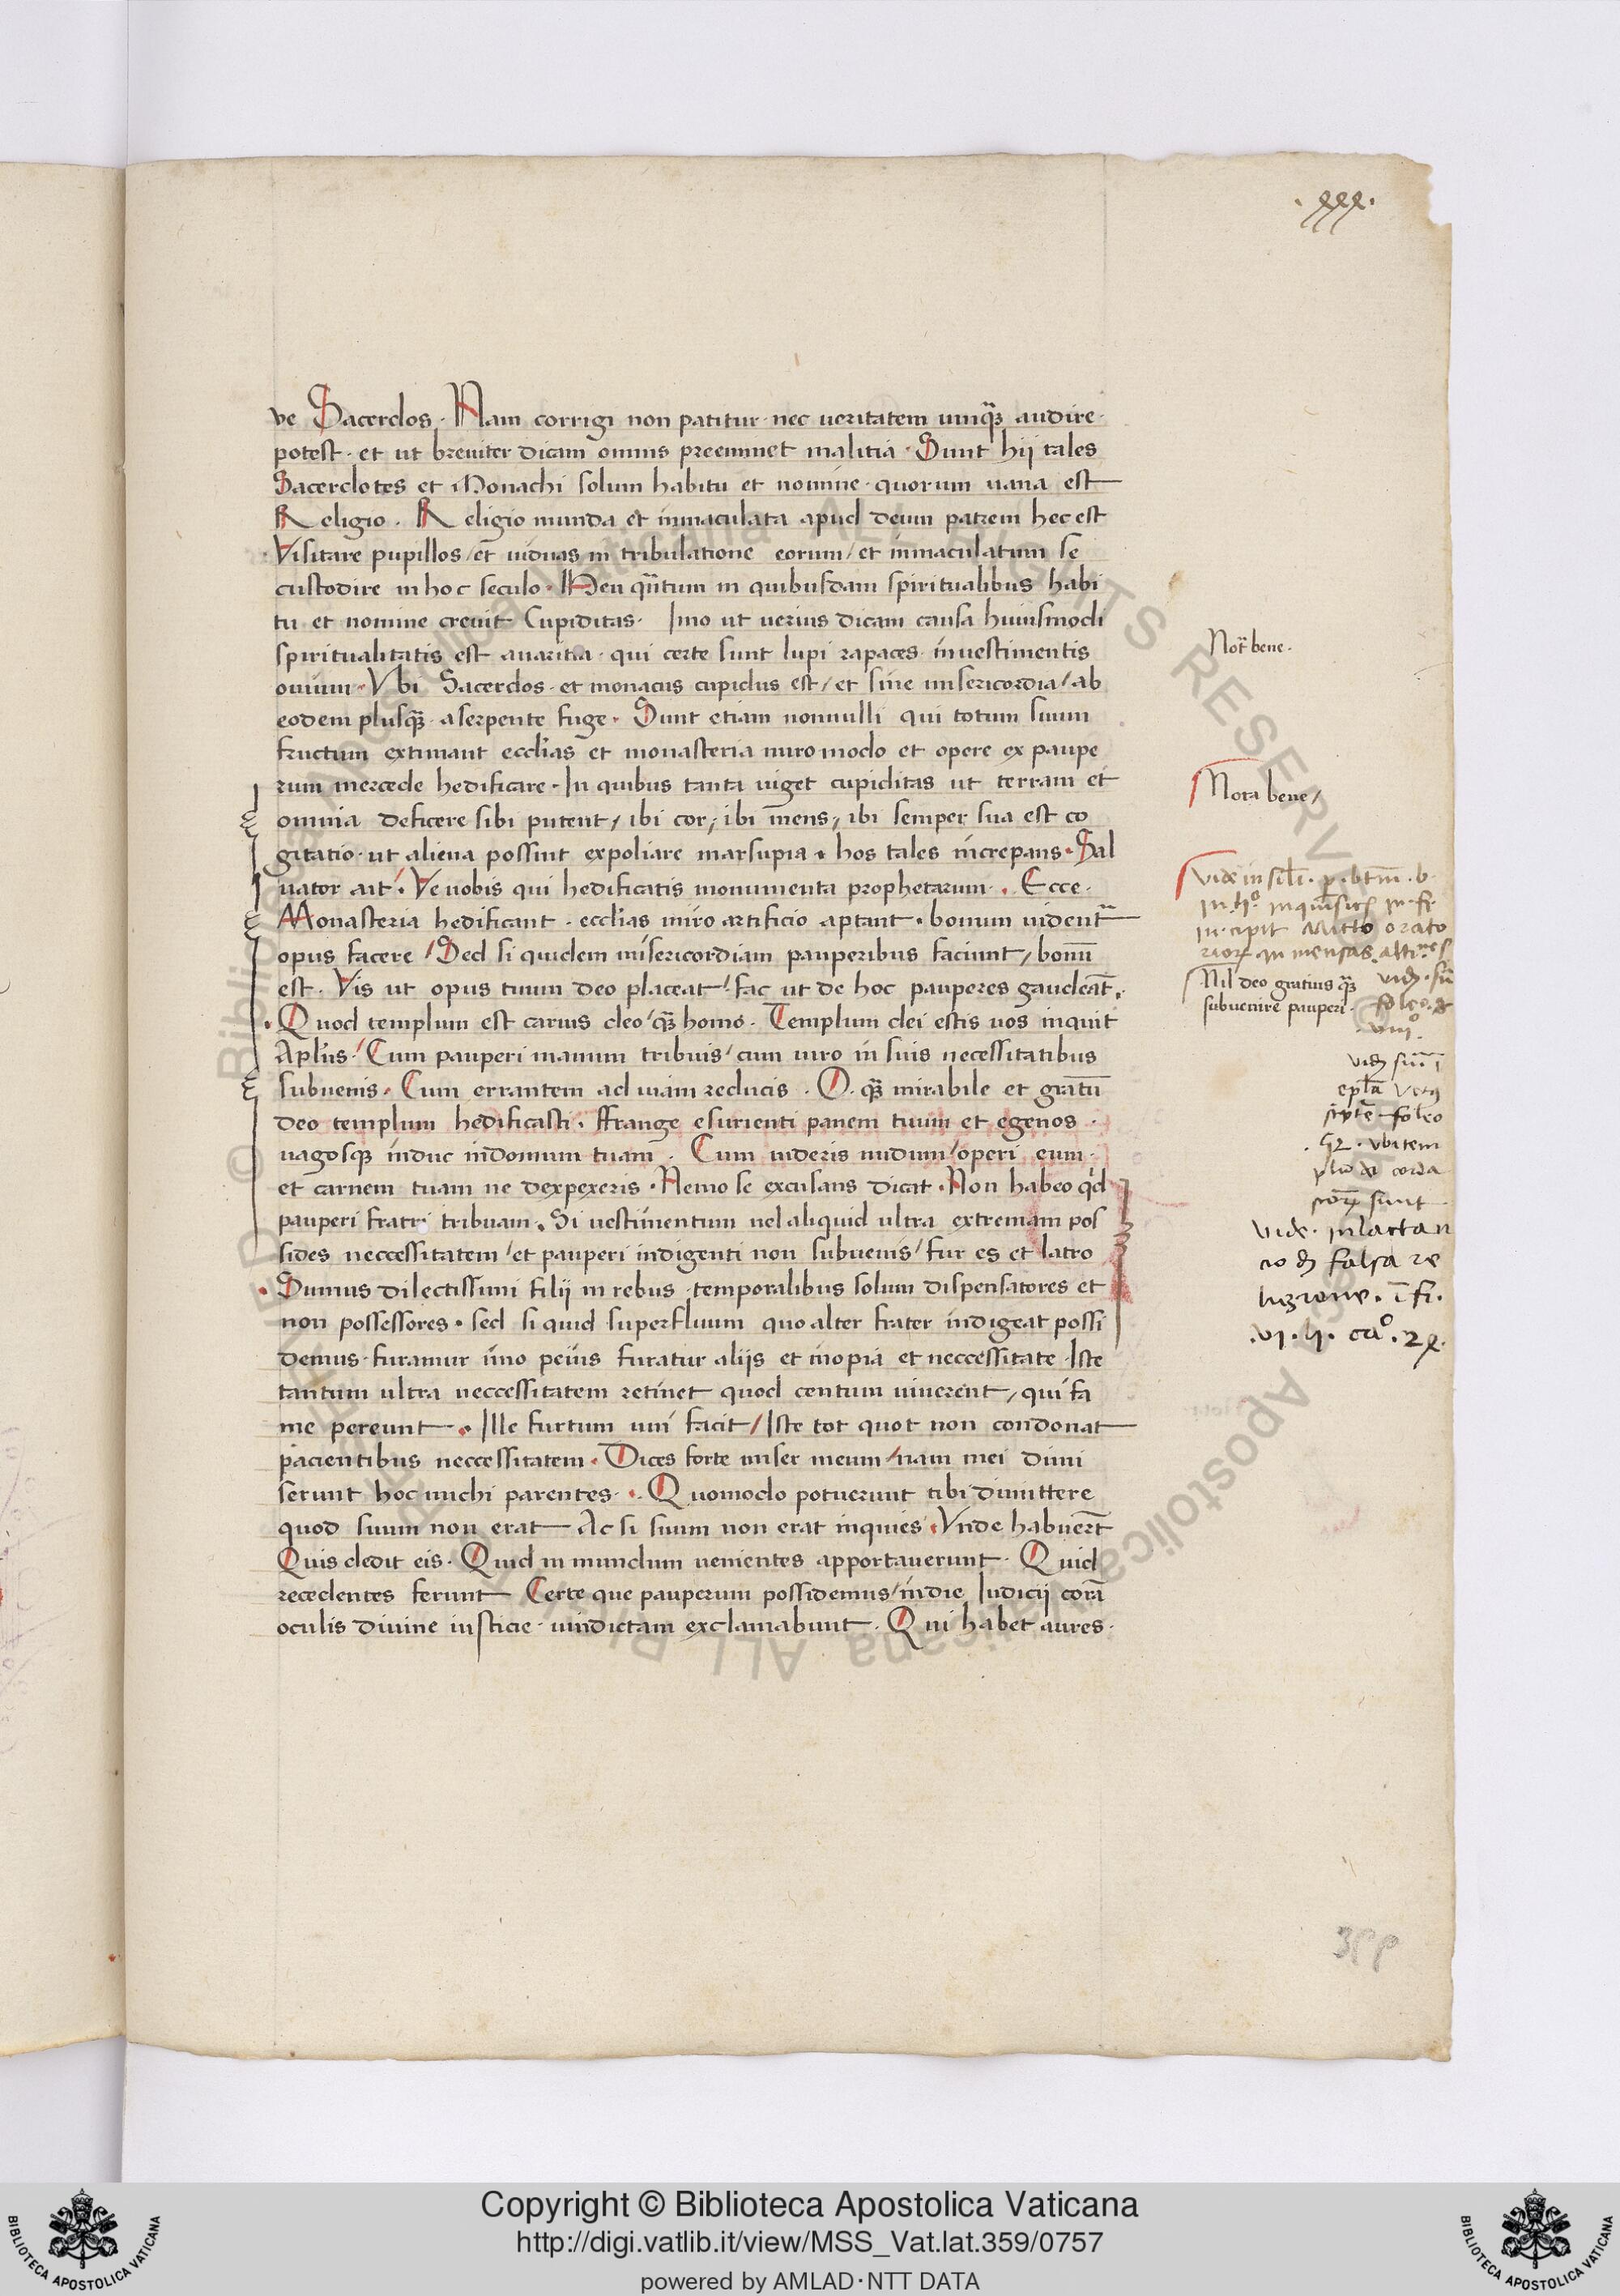 .xxx.
ve Sacerdos. Nam corrigi non patitur. nec ueritatem umq̃ audire.
potest. et ut breuiter dicam omnis preeminet malitia. Sunt hij tales
Sacerdotes et Monachi solum habitu et nomine. quorum uana est
Religio. Religio munda et inmaculata apud deum patrem hec est
Visitare pupillos/ et uiduas in tribulatione eorum/ et inmaculatum se
custodire in hoc seculo. Heu qũtum in quibusdam spiritualibus habi
tu et nomine creuit Cupiditas. Imo ut uerius dicam causa huiusmodi
spiritualitatis est auaritia. qui certe sunt lupi rapaces inuestimentis
ouium. Vbi Sacerdos. et monacus cupidus est/ et sine misericordia/ ab
eodem plusq̃ aserpente fuge. Sunt etiam nonnulli qui totum suum
fructum extimant ecclĩas et monasteria miro modo et opere ex paupe
rum mercede hedificare. In quibus tanta uiget cupiditas ut terram et
omnia deficere sibi putent/ ibi cor/ ibi mens/ ibi semper sua est co
gitatio. ut aliena possint expoliare marsupia. hos tales increpans. Sal
uator ait. Ve uobis qui hedificatis monumenta prophetarum. Ecce.
Monasteria hedificant. ecclĩas miro artificio aptant. bonum uident̃
opus facere/ Sed si quidem misericordiam pauperibus faciunt/ bonũ
est. Vis ut opus tuum deo placeat/ fac ut de hoc pauperes gaudeãt.
Quod templum est carius deo/ q̃ homo. Templum dei estis uos inquit
Aplũs/ Cum pauperi manum tribuis/ cum uiro in suis necessitatibus
subuenis. Cum errantem ad uiam reducis. O. q̃ mirabile et gratũ
deo templum hedificasti. ffrange esurienti panem tuum et egenos.
uagosq̃ induc indomum tuam. Cum uideris nudum/ operi eum.
et carnem tuam ne dexpexeris. Nemo se excusans dicat. Non habeo qd
pauperi fratri tribuam. Si uestimentum uel aliquid ultra extremam pos
sides neccessitatem/ et pauperi indigenti non subuenis/ fur es et latro
Sumus dilectissimi filij in rebus temporalibus solum dispensatores et
non possessores. sed si quid superfluum quo alter frater indigeat possi
demus. furamur imo peius furatur alijs et inopia et neccessitate. Iste
tantum ultra neccessitatem retinet quod centum uiuerent/ qui fa
me pereunt. Ille furtum uni facit/ Iste tot quot non condonat
pacientibus neccessitatem. Dices forte miser meum/ nam mei dimi
serunt hoc michi parentes. Quomodo potuerunt tibi dimittere
quod suum non erat Ac si suum non erat inquies. Vnde habuerũt
Quis dedit eis. Quid in mundum uenientes apportauerunt. Quid
recedentes ferunt Certe que pauperum possidemus/ indie Iudicij corã
oculis diuine iusticie. uindictam exclamabunt. Qui habet aures.
Not̃ bene.
Nota bene/
Nil deo gratius q̃
subuenire pauperi.
vide. inlactan
cio falsa re
ligione.